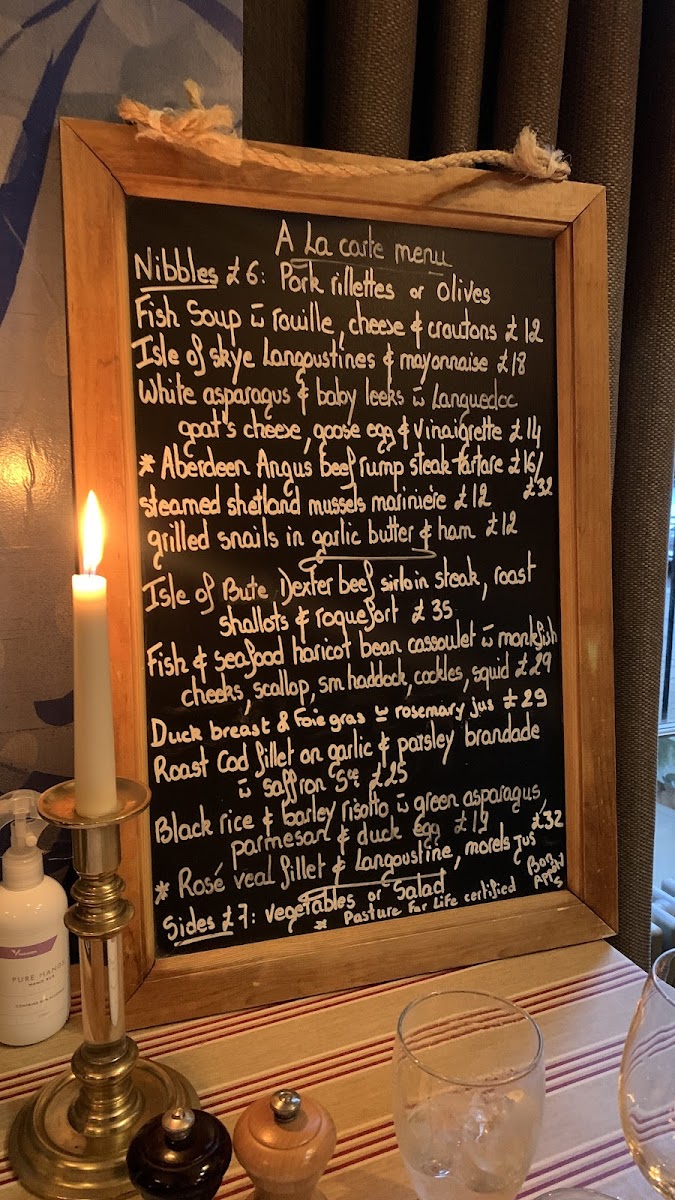 A La carte menu
Nibbles £6: Pork rillettes or Olives
Fish Soup c̄ rouille, cheese & croutons £12
Isle of skye Langoustines & mayonnaise £18
White asparagus & baby leeks c̄ Languedoc
goat's cheese, goose egg & vinaigrette £14
* Aberdeen Angus beef rump steak tartare £16/
£32
steamed shetland mussels marinière £12
grilled snails in garlic butter & ham £12
Isle of Bute Dexter beef sirloin steak, roast
shallots & roquefort £35
Fish & seafood haricot bean cassoulet c̄ monkfish
cheeks, scallop, sm haddock, cockles, squid £29
Duck breast & Foie gras c̄ rosemary jus £29
Roast Cod fillet on garlic & parsley brandade
c̄ saffron Sce £25
Black rice & barley risotto c̄ green asparagus,
parmesan & duck egg £19
* Rosé veal fillet & Langoustine, morels jus £32
Sides £7: vegetables or Salad
* Pasture For Life certified
Bon
Appétit
PURE HANDS
HAND RUB